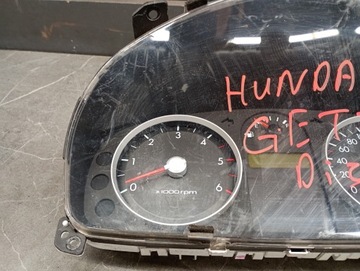 HUNDA
GET
DIE
3
2 4
1 5
0 6
x1000rpm
80
60
40
20